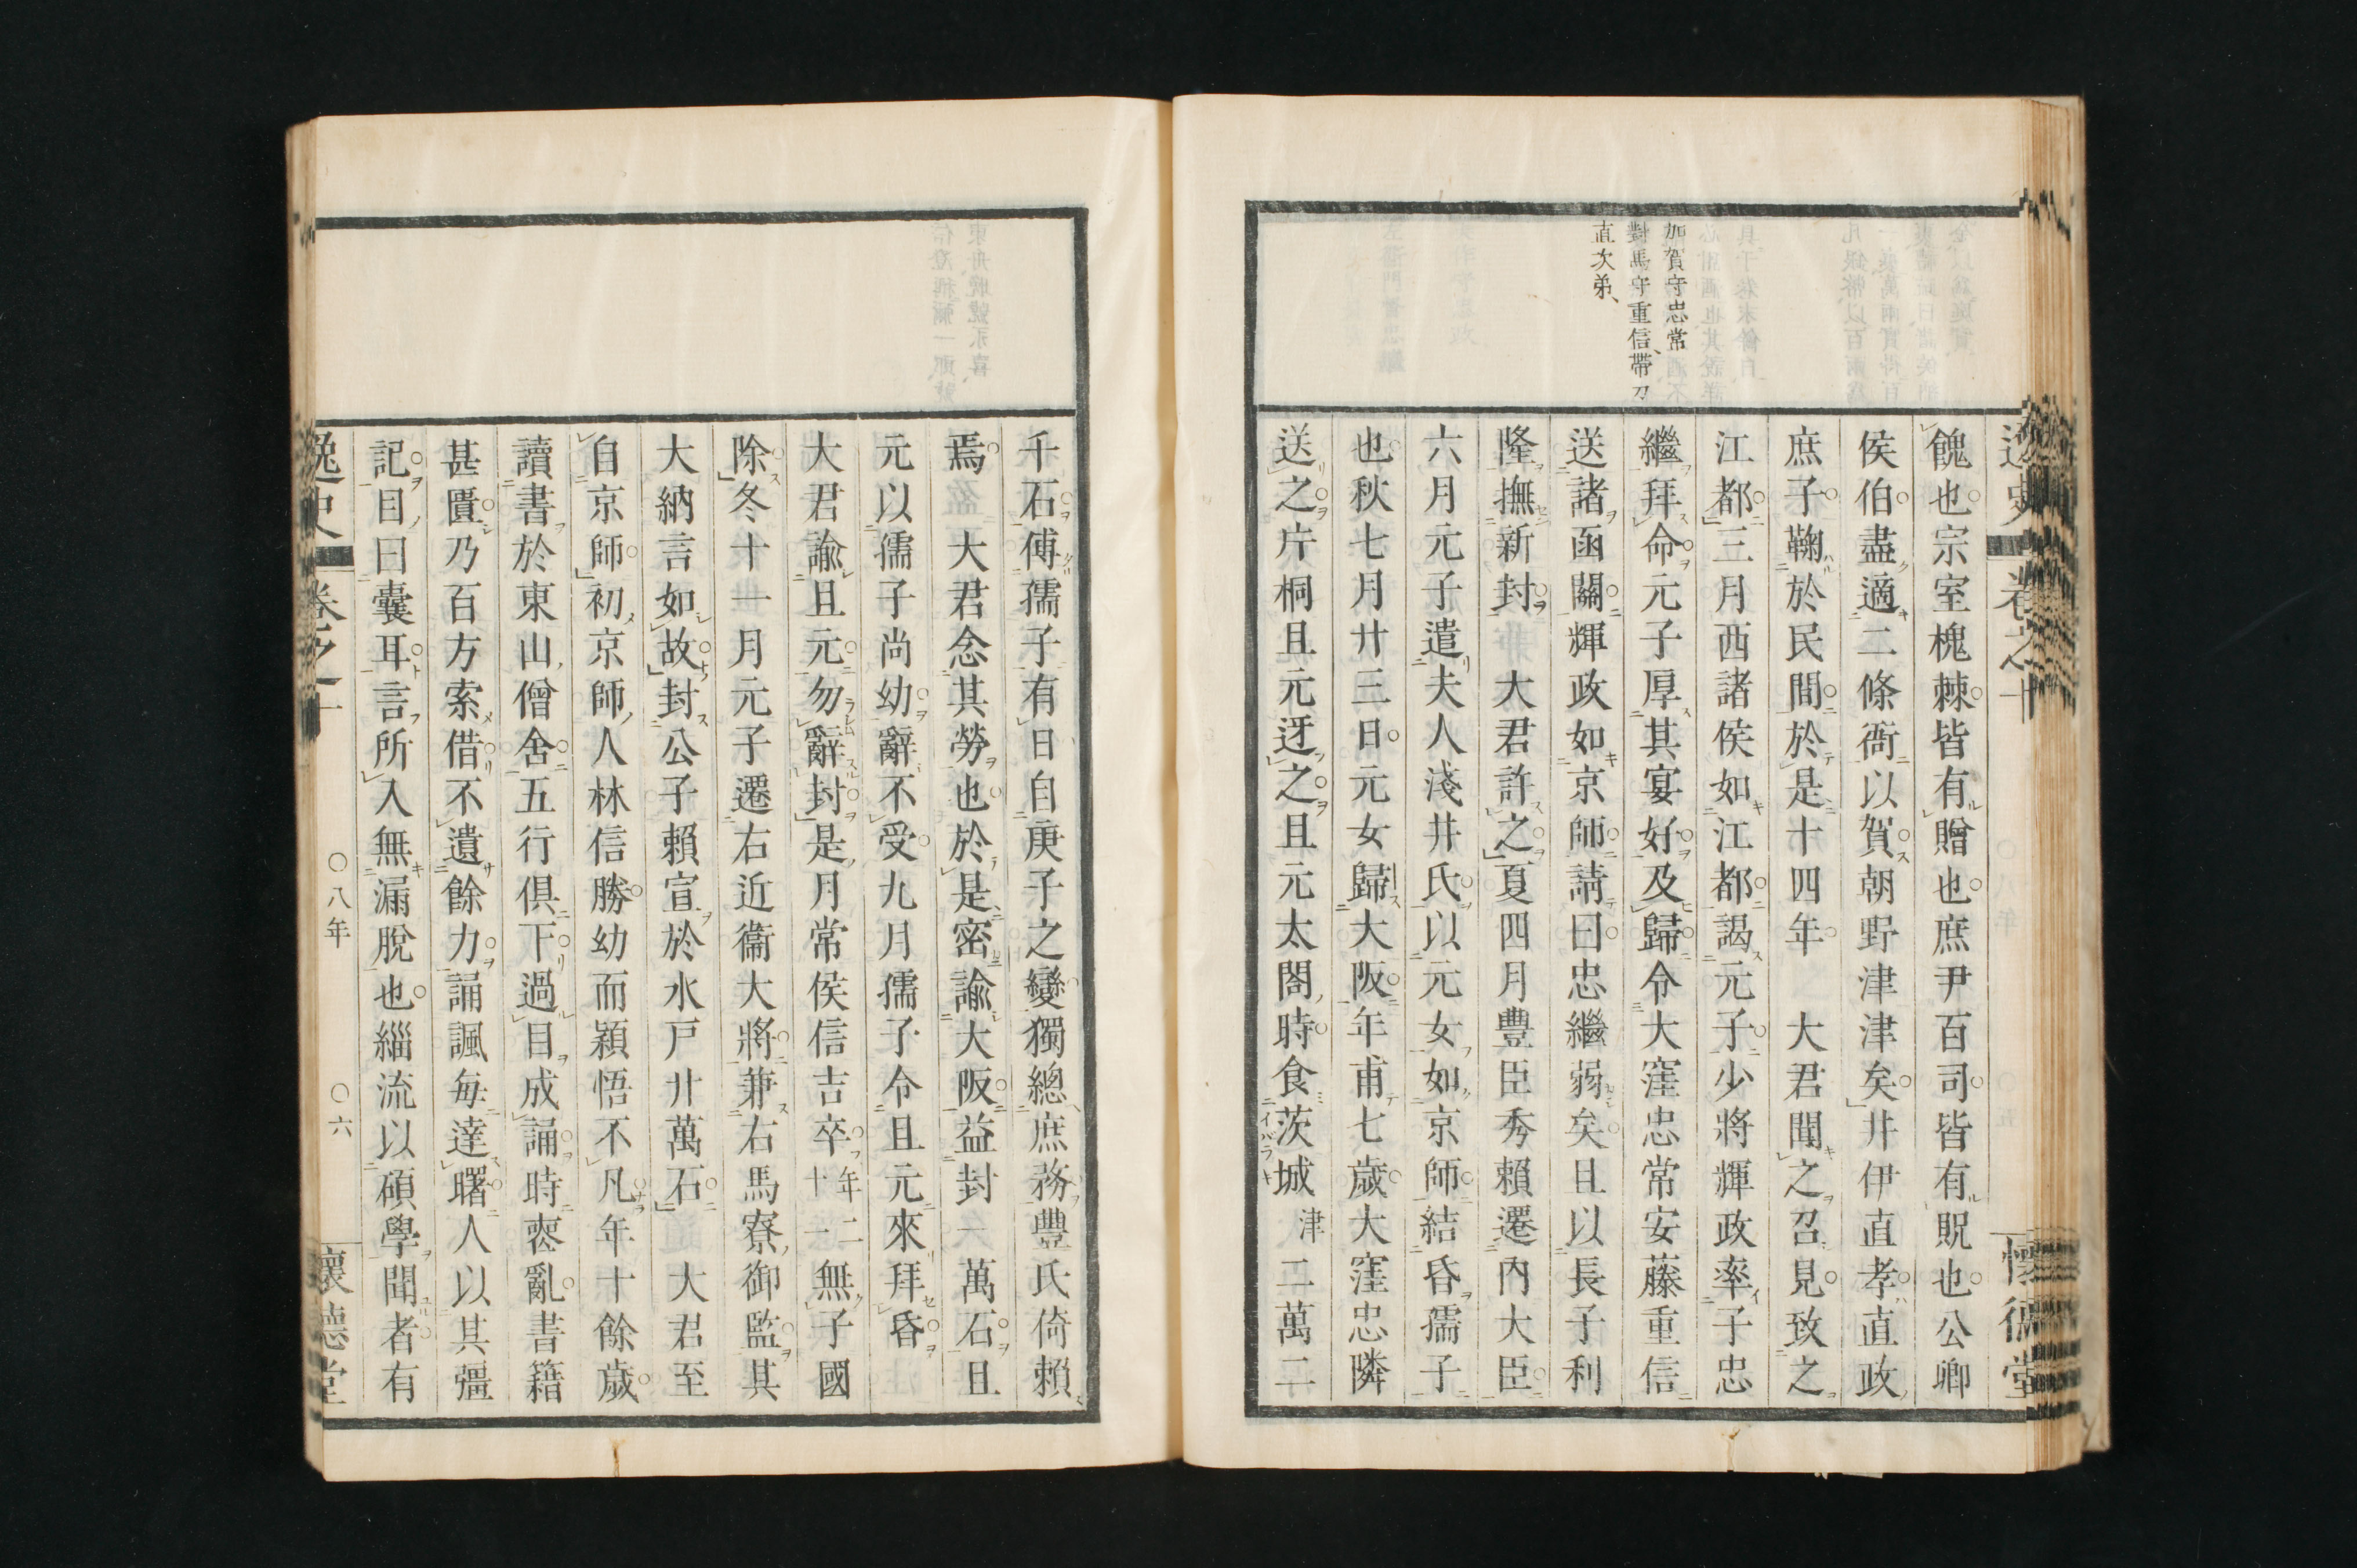 加賀守忠常
對馬守重信、帶刀
直次弟、
餽也宗室槐棘皆有贈也庶尹百司皆有貺也公卿
侯伯盡適二條衙以賀朝野津津矣井伊直孝直政
庶子鞠於民間於是十四年 大君聞之召見致之
江都三月西諸侯如江都謁元子少將輝政率子忠
繼拜命元子厚其宴好及歸令大窪忠常安藤重信
送諸函關輝政如京師請曰忠繼弱矣且以長子利
隆撫新封 大君許之夏四月豐臣秀賴遷內大臣
六月元子遣夫人淺井氏以元女如京師結昏孺子
也秋七月廿三日元女歸大阪年甫七歲大窪忠隣
送之片桐且元迓之且元太閤時食茨城津二萬二
千石傅孺子有日自庚子之變獨總庶務豐氏倚賴
焉 大君念其勞也於是密諭大阪益封一萬石且
元以孺子尚幼辭不受九月孺子令且元來拜昏
大君諭且元勿辭封是月常侯信吉卒年二十一無子國
除冬十一月元子遷右近衞大將兼右馬寮御監其
大納言如故封公子賴宣於水戶廿萬石 大君至
自京師初京師人林信勝幼而穎悟不凡年十餘歲
讀書於東山僧舍五行俱下過目成誦時喪亂書籍
甚匱乃百方索借不遺餘力誦諷每達曙人以其彊
記目曰囊耳言所入無漏脫也緇流以碩學聞者有
逸史 卷之十 〇八年 〇六 懷德堂